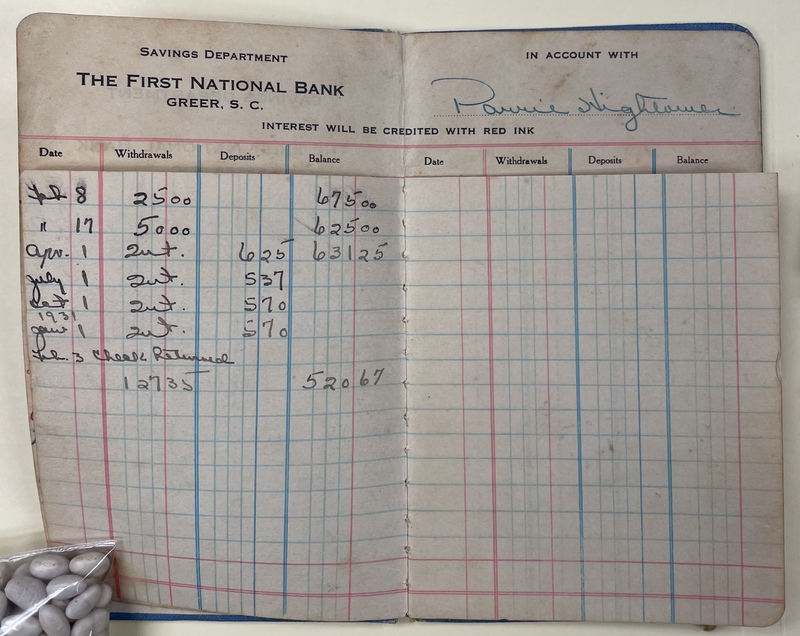 SAVINGS DEPARTMENT
THE FIRST NATIONAL BANK
GREER, S. C.
IN ACCOUNT WITH
Hightower
INTEREST WILL BE CREDITED WITH RED INK
Date Withdrawals Deposits Balance Date Withdrawals Deposits Balance
Feb 8 2500 67500
" 17 5000 62500
Apr. 1 Int. 625 63125
July 1 Int. 537
Oct 1 Int. 570
1931
Jan 1 Int. 570
Feb. 3 Check Returned
12735 52067